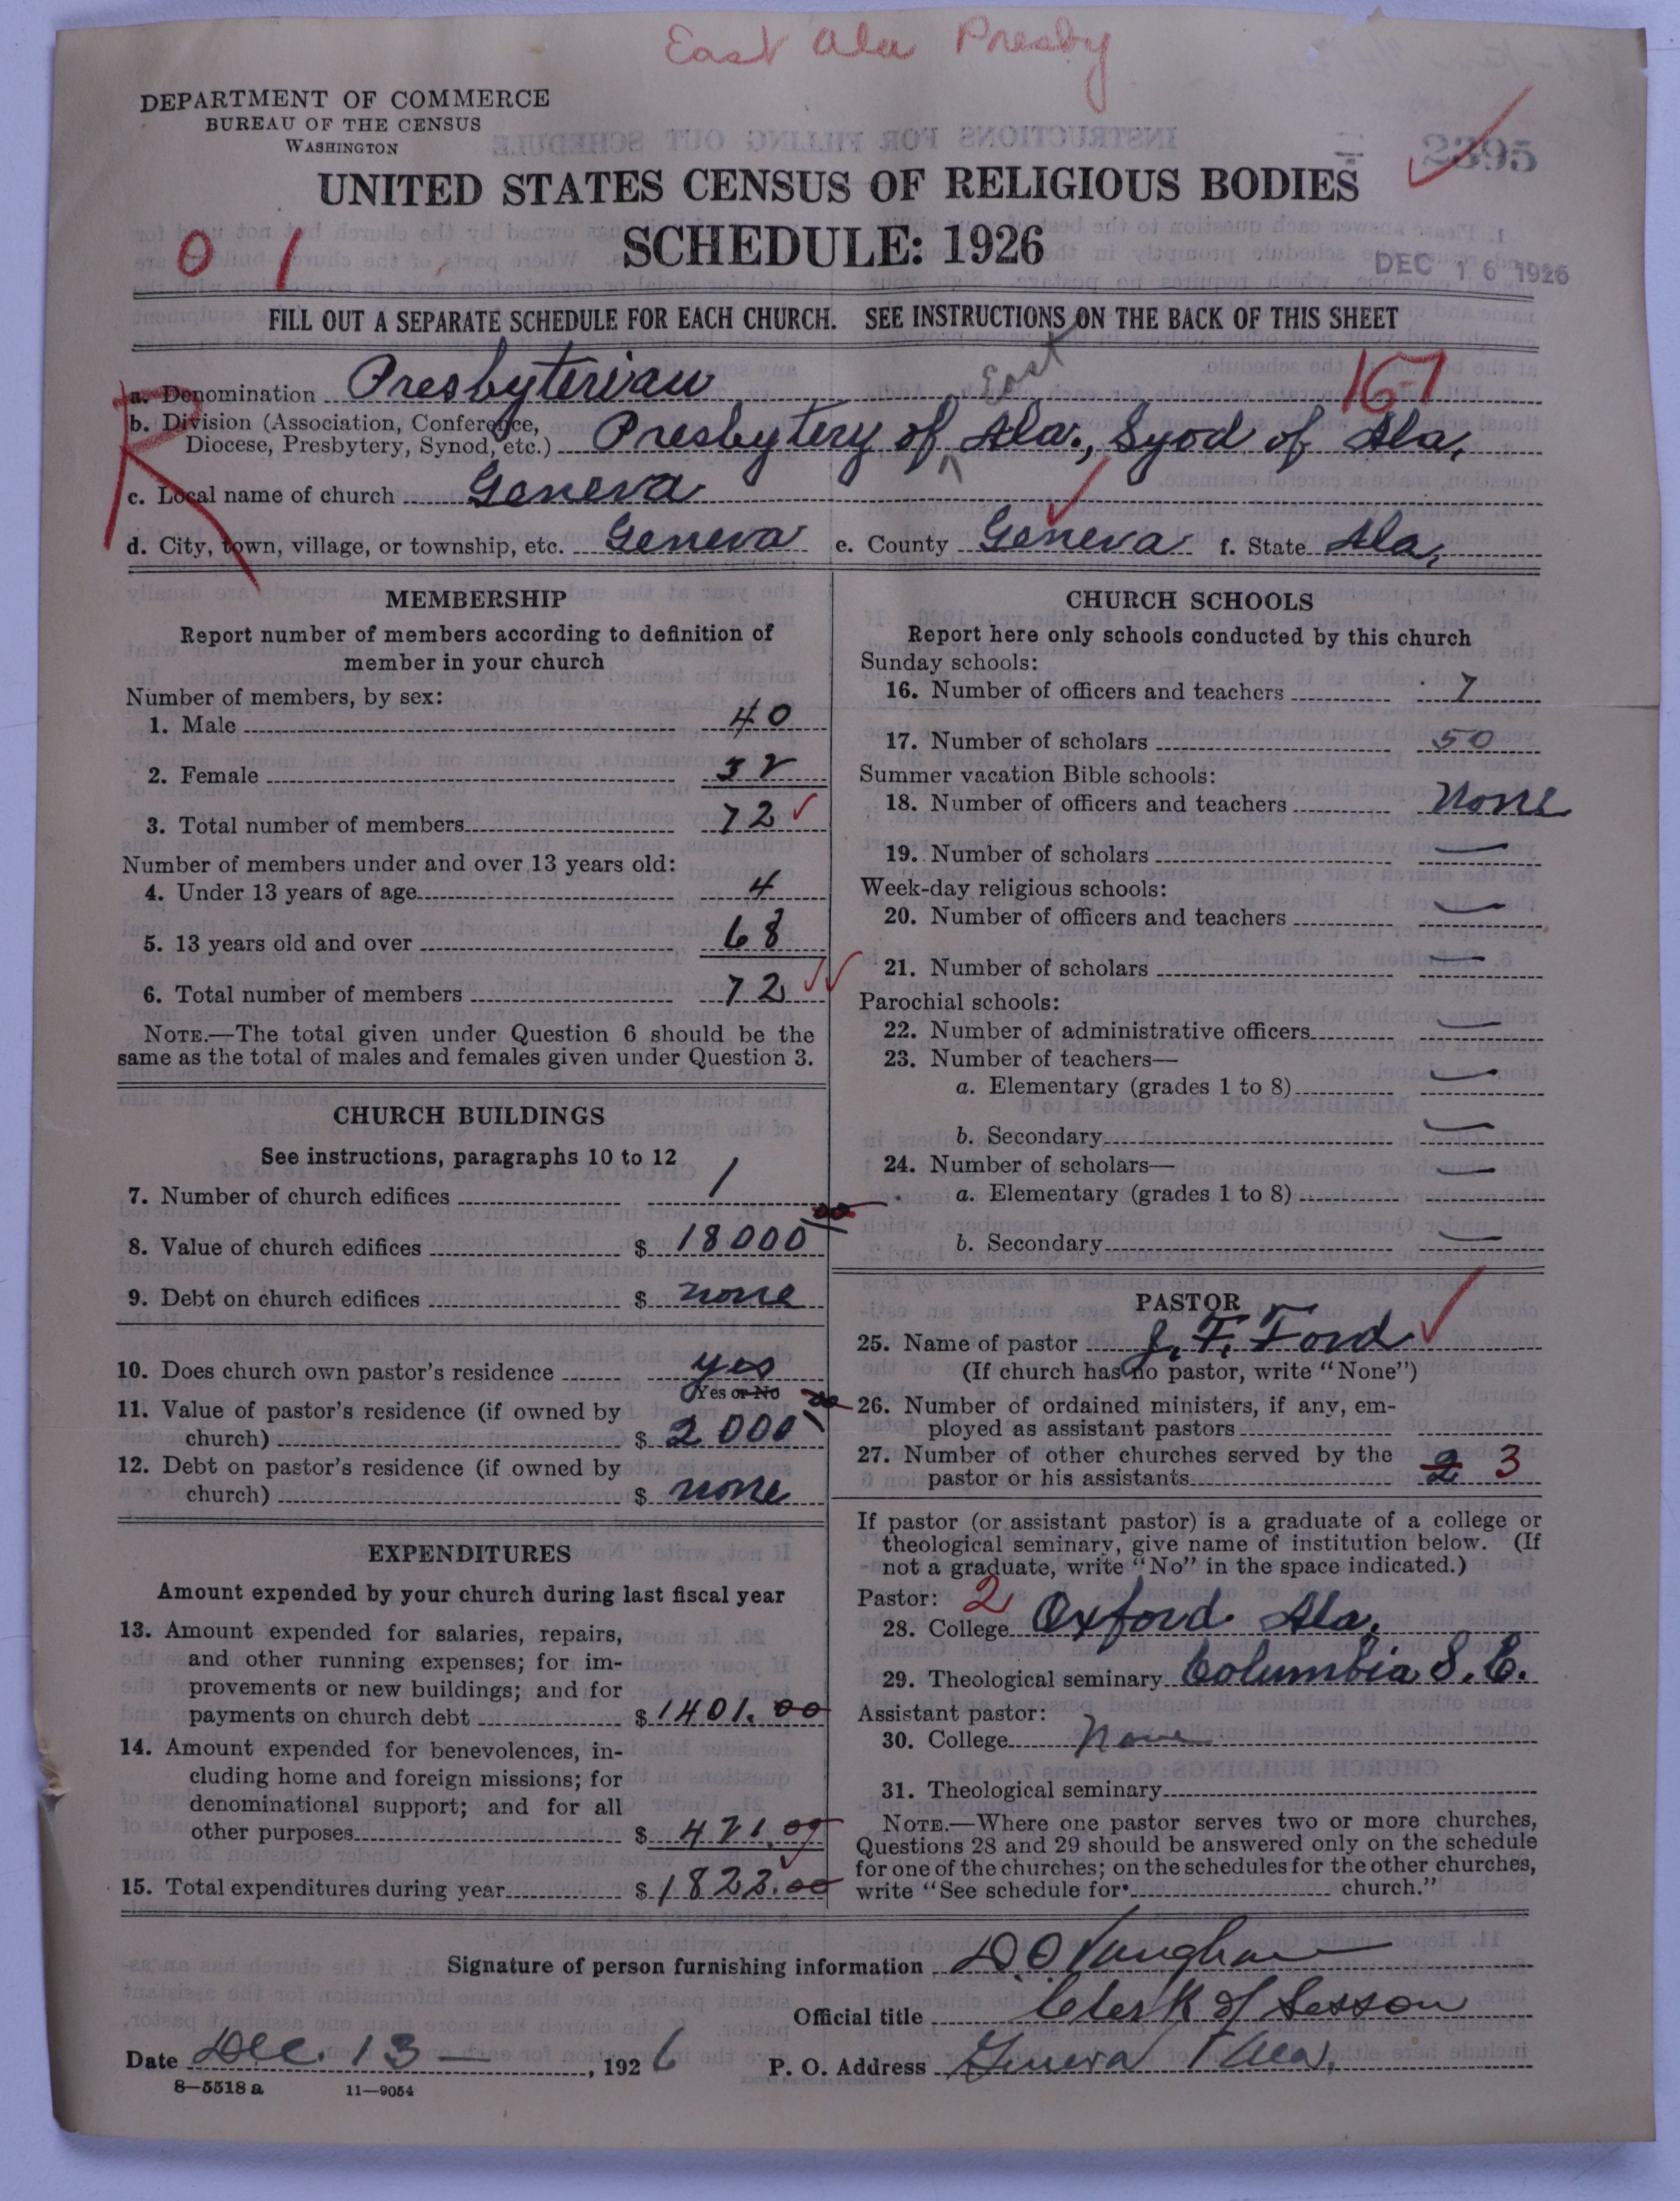 East Ala Presby
DEPARTMENT OF COMMERCE
BUREAU OF THE CENSUS
WASHINGTON
2395
UNITED STATES CENSUS OF RELIGIOUS BODIES
SCHEDULE: 1926
0 1
DEC 16 1926
FILL OUT A SEPARATE SCHEDULE FOR EACH CHURCH. SEE INSTRUCTIONS ON THE BACK OF THIS SHEET
R
a. Denomination Presbyterian
16-1
b. Division (Association, Conference,
Diocese, Presbytery, Synod, etc.) Presbytery of East Ala., Syod of Ala.
c. Local name of church Geneva
d. City, town, village, or township, etc. Geneva e. County Geneva f. State Ala.
MEMBERSHIP
Report number of members according to definition of
member in your church
Number of members, by sex:
1. Male 40
2. Female 32
3. Total number of members 72
Number of members under and over 13 years old:
4. Under 13 years of age 4
5. 13 years old and over 68
6. Total number of members 72
NOTE.—The total given under Question 6 should be the
same as the total of males and females given under Question 3.
CHURCH BUILDINGS
See instructions, paragraphs 10 to 12
7. Number of church edifices 1
8. Value of church edifices $ 18000 00
9. Debt on church edifices $ none
10. Does church own pastor's residence yes
Yes or No
11. Value of pastor's residence (if owned by
church) $ 2000 00
12. Debt on pastor's residence (if owned by
church) $ none
EXPENDITURES
Amount expended by your church during last fiscal year
13. Amount expended for salaries, repairs,
and other running expenses; for im-
provements or new buildings; and for
payments on church debt $ 1401.00
14. Amount expended for benevolences, in-
cluding home and foreign missions; for
denominational support; and for all
other purposes $ 421.00
15. Total expenditures during year $ 1822.00
CHURCH SCHOOLS
Report here only schools conducted by this church
Sunday schools:
16. Number of officers and teachers 7
17. Number of scholars 50
Summer vacation Bible schools:
18. Number of officers and teachers none
19. Number of scholars —
Week-day religious schools:
20. Number of officers and teachers —
21. Number of scholars —
Parochial schools:
22. Number of administrative officers —
23. Number of teachers—
a. Elementary (grades 1 to 8) —
b. Secondary —
24. Number of scholars—
a. Elementary (grades 1 to 8) —
b. Secondary —
PASTOR
25. Name of pastor J. F. Ford
(If church has no pastor, write "None")
26. Number of ordained ministers, if any, em-
ployed as assistant pastors
27. Number of other churches served by the
pastor or his assistants 2 3
If pastor (or assistant pastor) is a graduate of a college or
theological seminary, give name of institution below. (If
not a graduate, write "No" in the space indicated.)
Pastor: 2
28. College Oxford Ala.
29. Theological seminary Columbia S. C.
Assistant pastor:
30. College None
31. Theological seminary
NOTE.—Where one pastor serves two or more churches,
Questions 28 and 29 should be answered only on the schedule
for one of the churches; on the schedules for the other churches,
write "See schedule for church."
Signature of person furnishing information D. O. Vaughan
Official title Clerk of Sesson
Date Dec. 13 —, 1926 P. O. Address Geneva Ala.
8—5518 a 11—9054